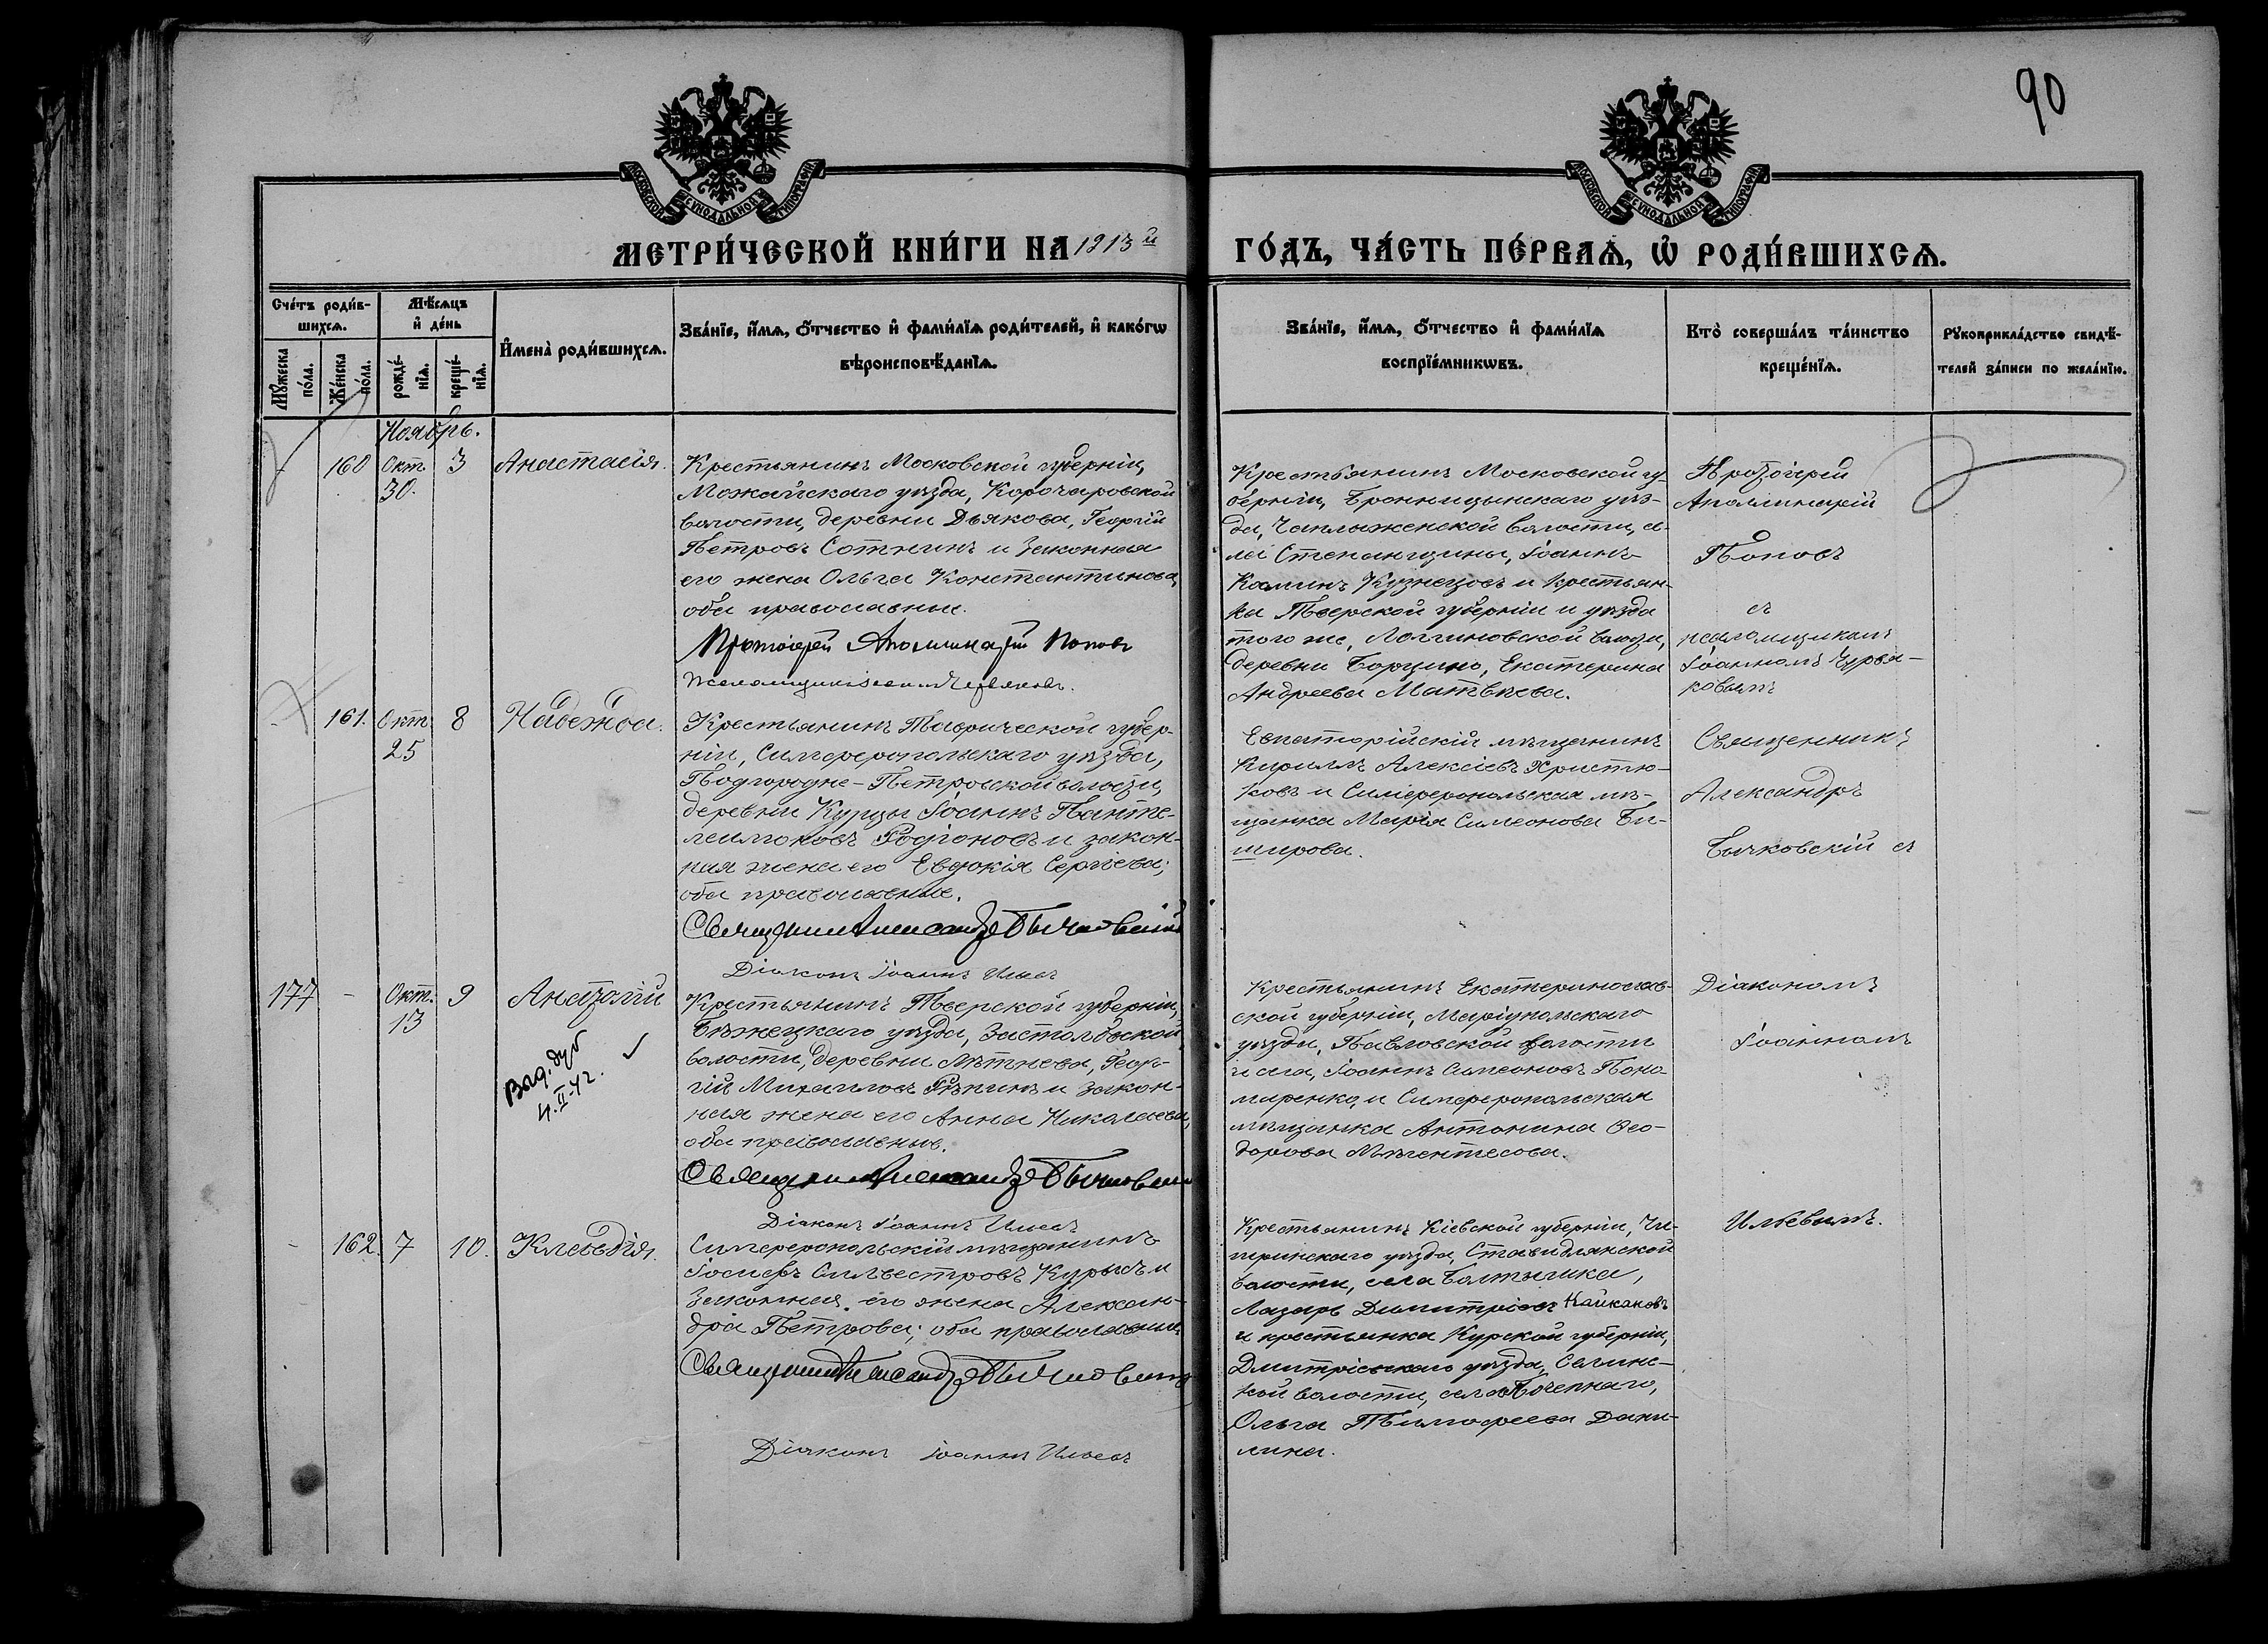 90
МОСКОВСКОЙ СУНОДАЛЬНОЙ ТИПОГРАФІИ
МОСКОВСКОЙ СУНОДАЛЬНОЙ ТИПОГРАФІИ
МЕТРИ́ЧЕСКОЙ КНИ́ГИ НА 1913й ГО́ДЪ, ЧА́СТЬ ПЕ́РВАѦ, Ѡ҆ РОДИ́ВШИХСѦ.
Сче́тъ роди́в-
шихсѧ.
Мѣ́сѧцъ
и҆ де́нь
Мꙋ́жеска
по́ла.
Же́нска
по́ла.
рожде́-
нїѧ.
креще́-
нїѧ.
И҆мена̀ роди́вшихсѧ.
Зва́нїе, и҆́мѧ, ѻ҆́тчество и҆ фами́лїѧ роди́телей, и҆ како́гѡ
вѣроисповѣ́данїѧ.
Зва́нїе, и҆́мѧ, ѻ҆́тчество и҆ фами́лїѧ
воспрїе́мникѡвъ.
Кто̀ соверша́лъ та́инство
креще́нїѧ.
Рꙋкоприкла́дство свидѣ́-
телей за́писи по жела́нїю.
Ноябрь.
- 160 Окт. 3 Анастасія.
30.
Крестьянинъ Московской губерніи,
Можайскаго уѣзда, Корочаровской
волости, деревни Дьякова, Георгій
Петровъ Сотнинъ и законная
его жена Ольга Константинова,
оба православные.
Протоіерей Аполлинарій Поповъ
Псаломщикъ Іоаннъ Червяковъ.
Крестьянинъ Московской гу-
берніи, Бронницынскаго уѣз-
да, Чаплыженской волости, се-
ла Степанщины, Іоаннъ
Кузнецовъ и крестьян-
ка Тверской губерніи и уѣзда
того же, Логгиновской волости,
деревни Борцино, Екатерина
Андреева Матвѣева.
Протоіерей
Аполлинарій
Поповъ
съ
псаломщикомъ
Іоанномъ Чурвя-
ковымъ
- 161. Окт. 8 Надежда.
25
Крестьянинъ Таврической губер-
ніи, Симферопольскаго уѣзда,
Подгородне-Петровской волости,
деревни Курцы Іоаннъ Панте-
леимоновъ Родіоновъ и закон-
ная жена его Евдокія Сергіева;
оба православные.
Священникъ Александръ Бычковскій
Діаконъ Іоаннъ Ильевъ
Евпаторійскій мѣщанинъ
Кириллъ Алексіевъ Христю-
ковъ и Симферопольская мѣ-
щанка Марія Симеонова Би-
широва.
Священникъ
Александръ
Бычковскій съ
177 - Окт. 9 Анатолій
13
Выд. дуб
4.II-42.
Крестьянинъ Тверской губерніи,
Бѣжецкаго уѣзда, Застолбской
волости, деревни Лѣтнева, Геор-
гій Михаиловъ Рѣпинъ и закон-
ная жена его Анна Николаева,
оба православные.
Священникъ Александръ Бычковскій
Діаконъ Іоаннъ Ильевъ
Крестьянинъ Екатеринослав-
ской губерніи, Маріупольскаго
уѣзда, Павловской волости
и села, Іоаннъ Симеоновъ Поно-
маренко, и Симферопольская
мѣщанка Антонина Ѳео-
дорова
Діакономъ
Іоанномъ
- 162. 7 10. Клавдія.
Симферопольскій мѣщанинъ
Іосифъ Сильвестровъ Курысъ и
законная его жена Алексан-
дра Петрова; оба православные
Священникъ Александръ Бычковскій
Діаконъ Іоаннъ Ильевъ
Крестьянинъ Кіевской губерніи, Чи-
гиринскаго уѣзда, Ставидлянской
волости, села Болтышка,
Лазарь Димитріевъ Кайкановъ
и крестьянка Курской губерніи,
Дмитріевскаго уѣзда, Селинс-
кой волости, села Почепнаго,
Ольга Тимофеева Дани-
лина.
Ильевымъ.